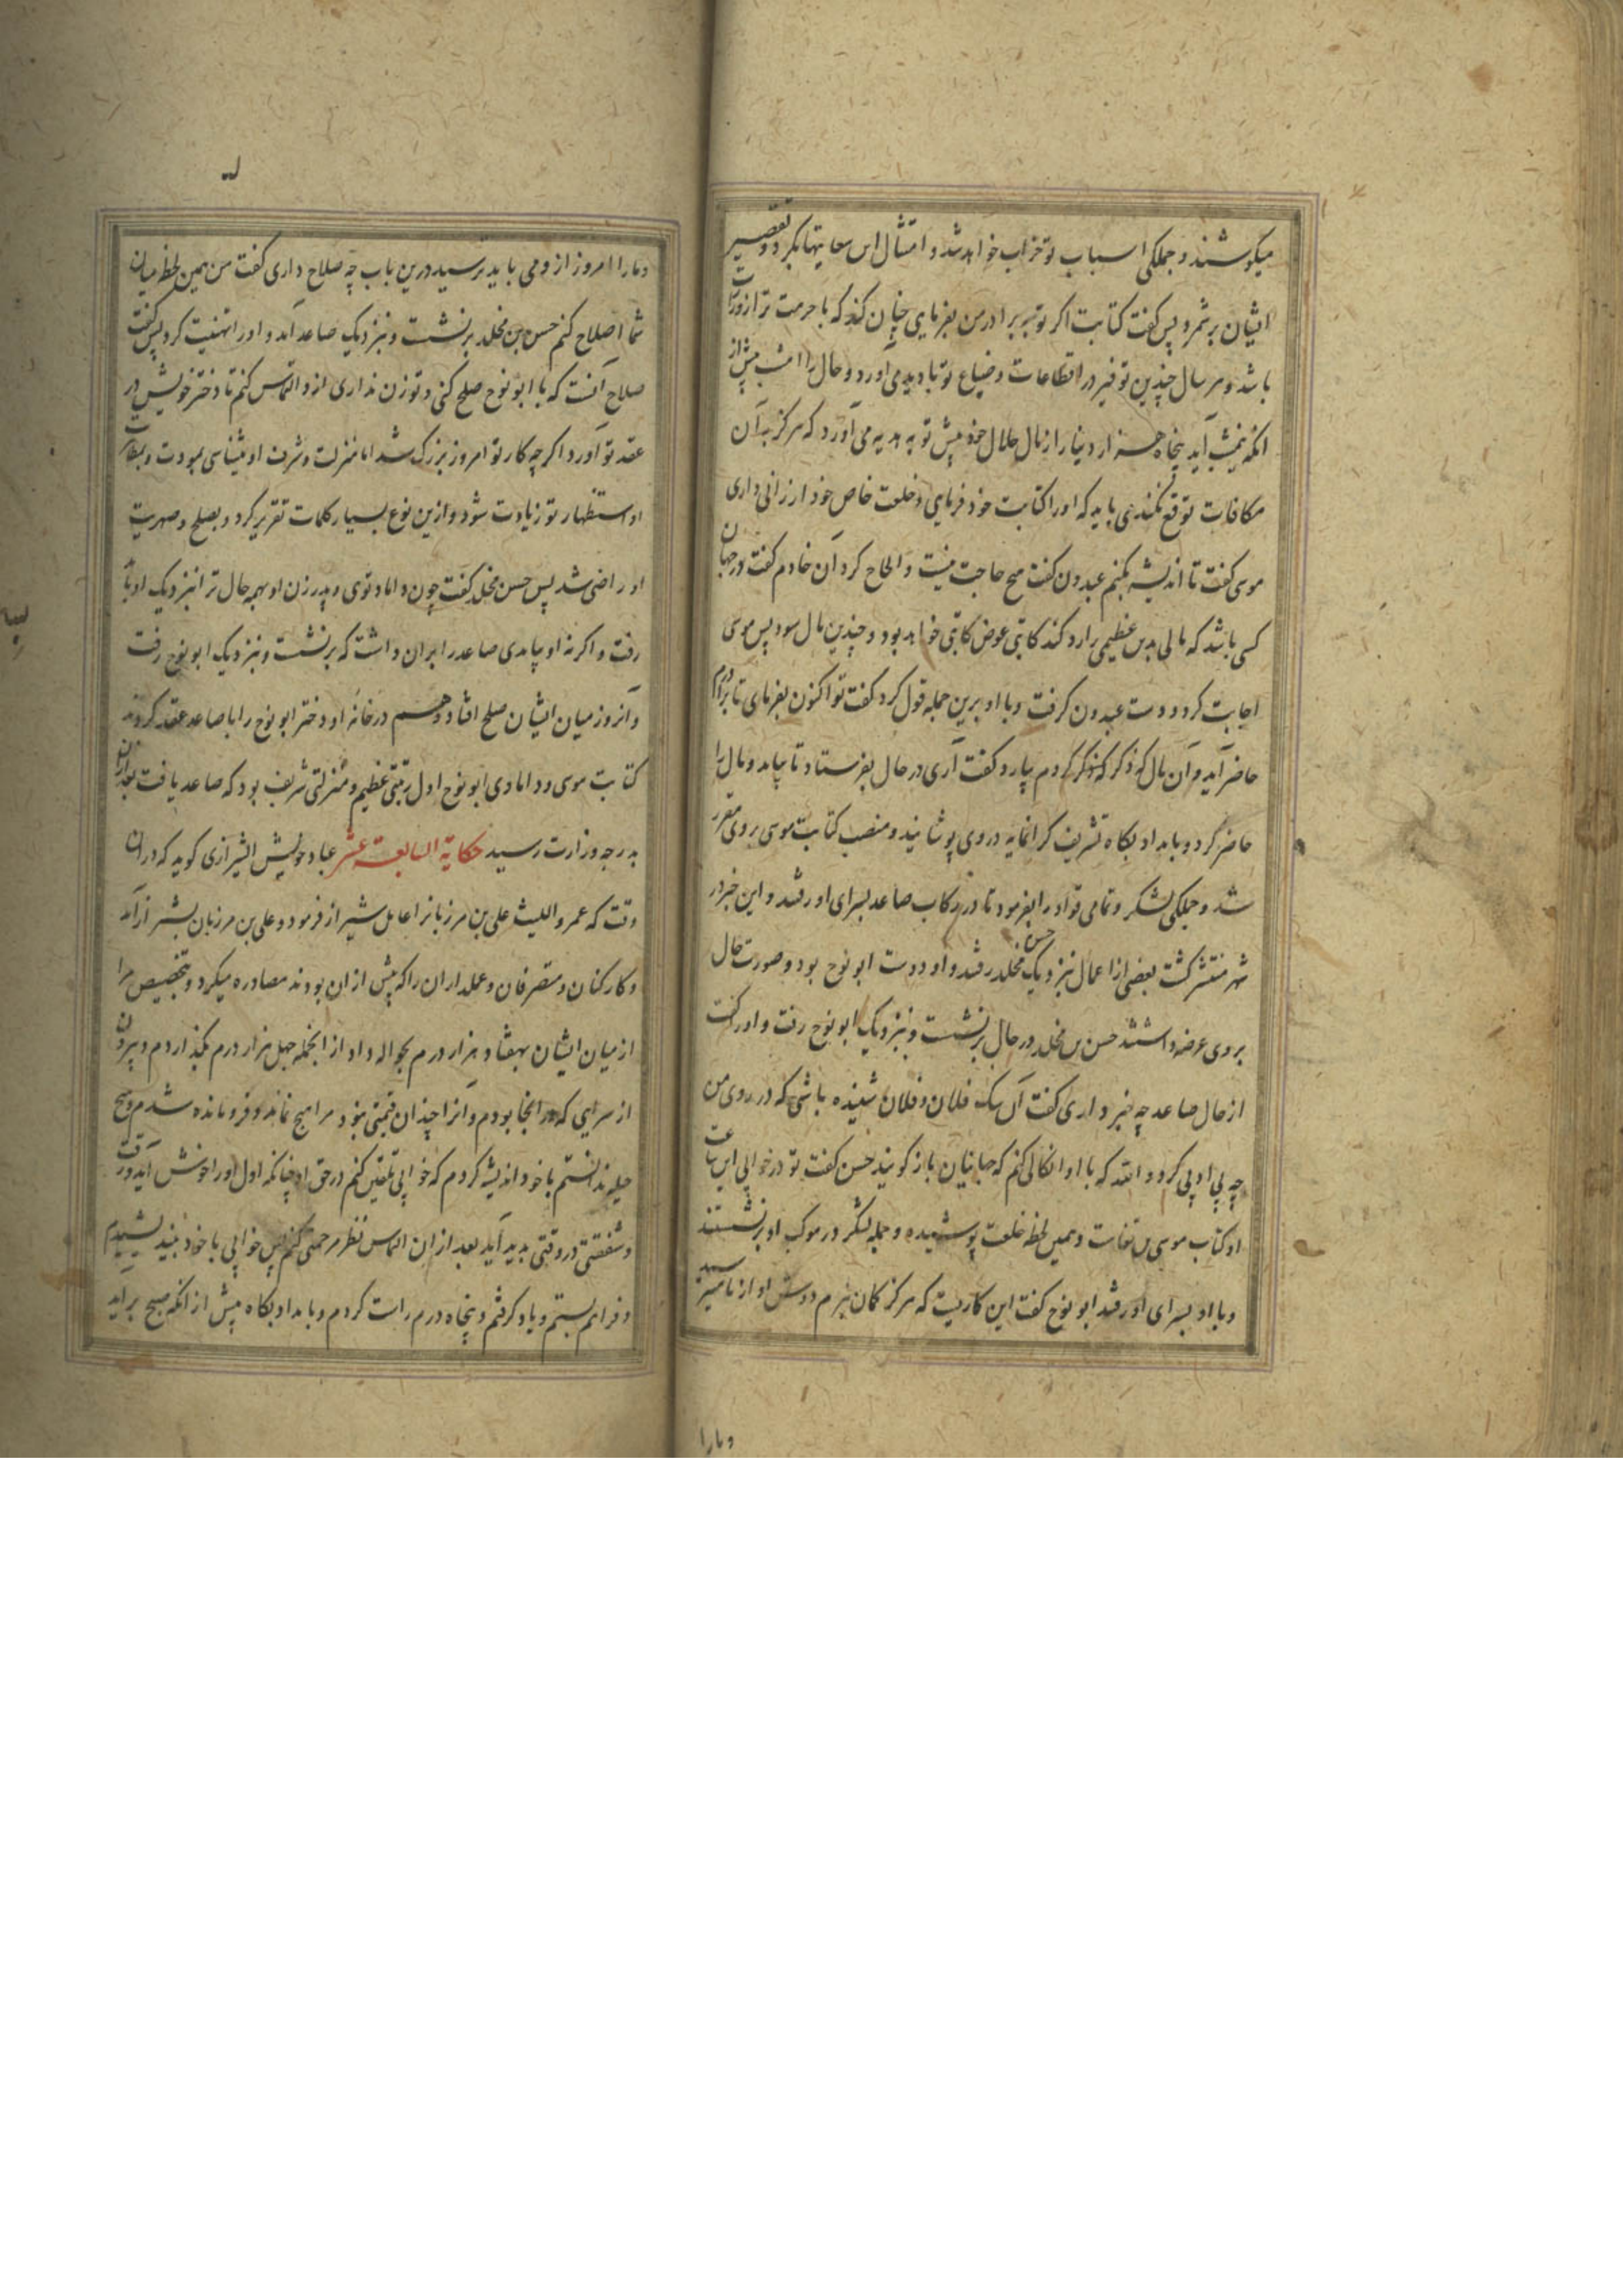 میکوشند و جملکی اسباب تو خراب خواهد شد و امثال این سعایتها بکرد و تقصیر
ایشان برشمرد پس کفت کتابت اکر تو ببرادر من بفرمایی چنان کند که با حرمت تر از وزارت
باشد و هر سال چندین توفیر در اقطاعات و ضیاع تو با دید می آورد و حالی را امشب پیش از
انکه بمیشب آید پنجاه هزار دینار از مال حلال خود پیش تو به هدیه می آورد که هرکز بدان
مکافات توقع نکند می باید که او را کتابت خود فرمایی و خلعت خاص خود ارزانی داری
موسی کفت تا اندیشه بکنم عبدون کفت هیچ حاجت نیست و الحاح کرد آن خادم کفت در جهان
کسی باشد که مالی بدین عظیمی را رد کند کاتبی عوض کاتبی خواهد بود و چندین مال سود پس موسی
اجابت کرد و دست عبدون کرفت و با او برین جمله قول کرد کفت تو اکنون بفرمای تا برادرم
حاضر آید و آن مال که ذکر کردم بیارد کفت آری در حال بفرستاد تا بیامد و مال را
حاضر کرد و بامداد بکاه تشریف کرانمایه در وی پوشانید و منصب کتابت موسی بر وی مقرر
شد و جملکی لشکر و تمامی قواد را بفرمود تا در رکاب صاعد بسرای او رفتند و این خبر در
شهر منتشر کشت بعضی از اعمال نزدیک حسن مخلد رفتند و او دوست ابو نوح بود و صورت حال
بر وی عرضه داشتند حسن بن مخلد در حال برنشست و بنزدیک ابو نوح رفت و او را کفت
از حال صاعد چه خبر داری کفت آن سک فلان و فلان شنیده باشی که در روی من
چه بی ادبی کرد و الله که با او انکالی کنم که جهانیان باز کویند حسن کفت تو در خوابی این ساعت
او کتاب موسی بن بغاست و همین لحظه خلعت پوشیده و جمله لشکر در موکب او برنشستند
و با او بسرای او رفتند ابو نوح کفت این کاریست که هرکز کمان نبرم
و ما را
و ما را امروز از و می باید ترسید درین باب چه صلاح داری کفت من همین لحظه میان
شما اصلاح کنم حسن بن مخلد برنشست و نزدیک صاعد آمد و او را تهنیت کرد پس کفت
صلاح آنست که با ابو نوح صلح کنی و تو زن نداری ازو التماس کنم تا دختر خویش در
عقد تو آورد اکر چه کار تو امروز بزرک شد اما منزلت و شرف او میشناسی
او استظهار تو زیادت شود و ازین نوع بسیار کلمات تقریر کرد و بصلح و صهریت
او راضی شد پس حسن مخلد کفت چون داماد توی و پدر زن او بهمه حال ترا نزدیک او باید
رفت و اکر نه او بیامدی صاعد را بران داشت که برنشست و بنزدیک ابو نوح رفت
و آنروز میان ایشان صلح افتاد و هم در خانه او دختر ابو نوح را با صاعد عقد کردند
کتابت موسی و دامادی ابو نوح اول رتبتی عظیم و منزلتی شریف بود که صاعد یافت بعد ازان
بدرجه وزارت رسید حکایة السابعة عشر عباد حریش الشیرازی کوید که دران
وقت که عمرو اللیث علی بن مرزبانرا عامل شیراز فرمود و علی بن مرزبان بشیراز آمد
و کارکنان و متصرفان و عملداران را که پیش ازان بودند مصادره میکرد و بتخصیص مرا
از میان ایشان بهفتاد هزار درم بحواله داد از انجمله چهل هزار درم بکذاردم و بیرون
از سرایی که در انجا بودم و آنرا چندان قیمتی نبود مرا هیچ نماند و فرومانده شدم و هیچ
حیله ندانستم با خود اندیشه کردم که خوابی تلقین کنم در حق او چنانکه اول او را خوش آید و رقت
و شفقتی در وقتی پدید آید بعد ازان التماس نظر مرحمتی کنم پس خوابی با خود بیندیشیدم
و فراهم بستم و یاد کرفتم و پنجاه درم راست کردم و بامداد بکاه پیش از انکه صبح برآید